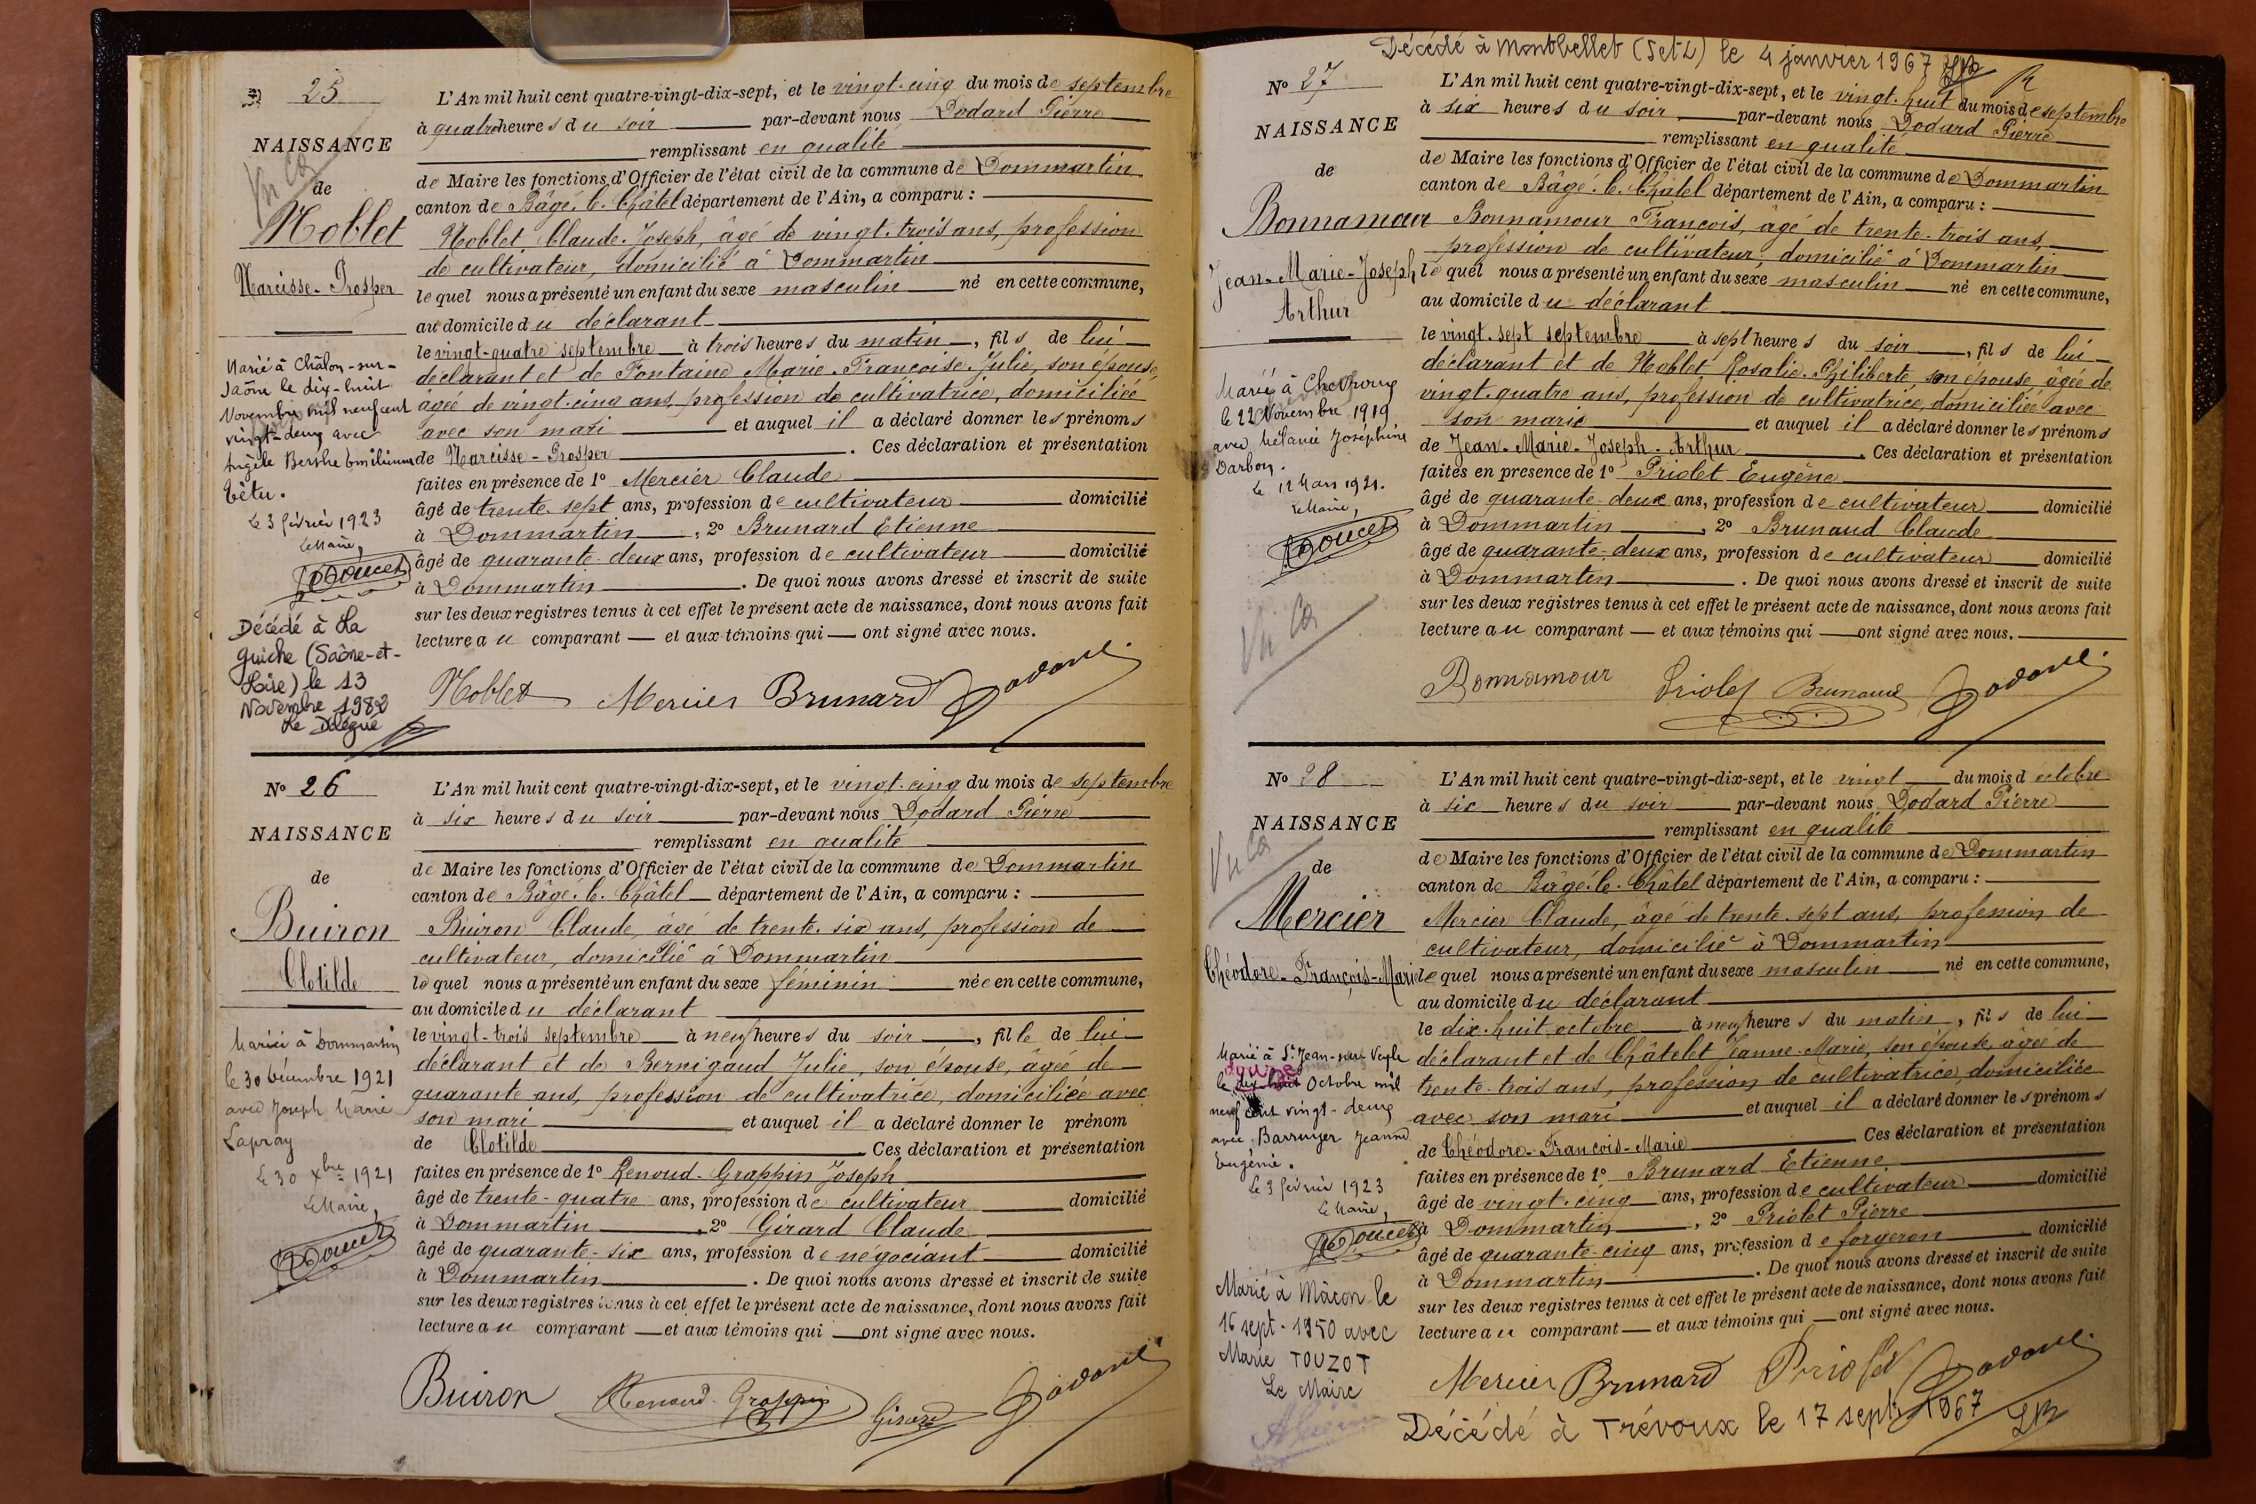 25
NAISSANCE
Vu Ca
de
Noblet
Narcisse-Prosper
Marié à Châlon-sur-
Saône le dix-huit
Novembre mil neuf cent
vingt-deux avec
Angèle Berthe Emilienne
Têtu.
Le 3 février 1923
Le Maire,
Doucet
Décédé à La
Guiche (Saône-et-
Loire) le 13
Novembre 1982
Le Délégué
L'An mil huit cent quatre-vingt-dix-sept, et le vingt-cinq du mois de septembre
à quatre heures du soir par-devant nous Dodard Pierre
remplissant en qualité
de Maire les fonctions d'Officier de l'état civil de la commune de Dommartin
canton de Bâgé-le-Châtel département de l'Ain, a comparu :
Noblet Claude-Joseph, âgé de vingt-trois ans, profession
de cultivateur, domicilié à Dommartin
lequel nous a présenté un enfant du sexe masculin né en cette commune,
au domicile du déclarant
le vingt-quatre septembre à trois heures du matin, fils de lui
déclarant et de Fontaine Marie-Françoise-Julie, son épouse,
âgée de vingt-cinq ans, profession de cultivatrice, domiciliée
avec son mari et auquel il a déclaré donner les prénoms
de Narcisse-Prosper. Ces déclaration et présentation
faites en présence de 1º Mercier Claude
âgé de trente-sept ans, profession de cultivateur domicilié
à Dommartin, 2º Brunard Etienne
âgé de quarante-deux ans, profession de cultivateur domicilié
à Dommartin. De quoi nous avons dressé et inscrit de suite
sur les deux registres tenus à cet effet le présent acte de naissance, dont nous avons fait
lecture au comparant — et aux témoins qui — ont signé avec nous.
Noblet Mercier Brunard Dodard
Nº 26
NAISSANCE
de
Buiron
Clotilde
Mariée à Dommartin
le 30 Décembre 1921
avec Joseph Marie
Lapray
Le 30 Xbre 1921
Le Maire,
Doucet
L'An mil huit cent quatre-vingt-dix-sept, et le vingt-cinq du mois de septembre
à six heures du soir par-devant nous Dodard Pierre
remplissant en qualité
de Maire les fonctions d'Officier de l'état civil de la commune de Dommartin
canton de Bâgé-le-Châtel département de l'Ain, a comparu :
Buiron Claude, âgé de trente-six ans, profession de
cultivateur, domicilié à Dommartin
lequel nous a présenté un enfant du sexe féminin née en cette commune,
au domicile du déclarant
le vingt-trois septembre à neuf heures du soir, fille de lui
déclarant et de Bernigaud Julie, son épouse, âgée de
quarante ans, profession de cultivatrice, domiciliée avec
son mari et auquel il a déclaré donner le prénom
de Clotilde Ces déclaration et présentation
faites en présence de 1º Renoud-Grappin Joseph
âgé de trente-quatre ans, profession de cultivateur domicilié
à Dommartin, 2º Girard Claude
âgé de quarante-six ans, profession de négociant domicilié
à Dommartin. De quoi nous avons dressé et inscrit de suite
sur les deux registres tenus à cet effet le présent acte de naissance, dont nous avons fait
lecture au comparant — et aux témoins qui — ont signé avec nous.
Buiron Renoud-Grappin Girard Dodard
Décédé à Montbellet (S et L) le 4 janvier 1967
Nº 27
NAISSANCE
de
Bonnamour
Jean-Marie-Joseph
Arthur
Marié à Chevroux
le 22 Novembre 1919
avec Mélanie Joséphine
Darbon.
Le 12 Mars 1921.
Le Maire,
Doucet
Vu Ca
L'An mil huit cent quatre-vingt-dix-sept, et le vingt-huit du mois de septembre
à six heures du soir par-devant nous Dodard Pierre
remplissant en qualité
de Maire les fonctions d'Officier de l'état civil de la commune de Dommartin
canton de Bâgé-le-Châtel département de l'Ain, a comparu :
Bonnamour François, âgé de trente-trois ans,
profession de cultivateur, domicilié à Dommartin
lequel nous a présenté un enfant du sexe masculin né en cette commune,
au domicile du déclarant
le vingt-sept septembre à sept heures du soir, fils de lui
déclarant et de Noblet Rosalie-Philiberte, son épouse, âgée de
vingt-quatre ans, profession de cultivatrice, domiciliée avec
son marie et auquel il a déclaré donner les prénoms
de Jean-Marie-Joseph-Arthur. Ces déclaration et présentation
faites en présence de 1º Priolet Eugène
âgé de quarante-deux ans, profession de cultivateur domicilié
à Dommartin, 2º Brunaud Claude
âgé de quarante-deux ans, profession de cultivateur domicilié
à Dommartin. De quoi nous avons dressé et inscrit de suite
sur les deux registres tenus à cet effet le présent acte de naissance, dont nous avons fait
lecture au comparant — et aux témoins qui — ont signé avec nous.
Bonnamour Priolet Brunaud Dodard
Nº 28
NAISSANCE
Vu Ca
de
Mercier
Théodore-François-Marie
Marié à St Jean-sur-Veyle
quinze
le dix-huit Octobre mil
neuf cent vingt-deux
avec Barruyer Jeanne
Eugénie.
Le 3 février 1923
Le Maire,
Doucet
Marié à Mâcon le
16 sept. 1950 avec
Marie TOUZOT
Le Maire
L'An mil huit cent quatre-vingt-dix-sept, et le vingt du mois d octobre
à six heures du soir par-devant nous Dodard Pierre
remplissant en qualité
de Maire les fonctions d'Officier de l'état civil de la commune de Dommartin
canton de Bâgé-le-Châtel département de l'Ain, a comparu :
Mercier Claude, âgé de trente-sept ans, profession de
cultivateur, domicilié à Dommartin
lequel nous a présenté un enfant du sexe masculin né en cette commune,
au domicile du déclarant
le dix-huit octobre à neuf heures du matin, fils de lui
déclarant et de Châtelet Jeanne-Marie, son épouse, âgée de
trente-trois ans, profession de cultivatrice, domiciliée
avec son mari et auquel il a déclaré donner les prénoms
de Théodore-François-Marie Ces déclaration et présentation
faites en présence de 1º Brunard Etienne
âgé de vingt-cinq ans, profession de cultivateur domicilié
à Dommartin, 2º Priolet Pierre
âgé de quarante-cinq ans, profession de forgeron domicilié
à Dommartin. De quoi nous avons dressé et inscrit de suite
sur les deux registres tenus à cet effet le présent acte de naissance, dont nous avons fait
lecture au comparant — et aux témoins qui — ont signé avec nous.
Mercier Brunard Priolet Dodard
Décédé à Trévoux le 17 sept 1967